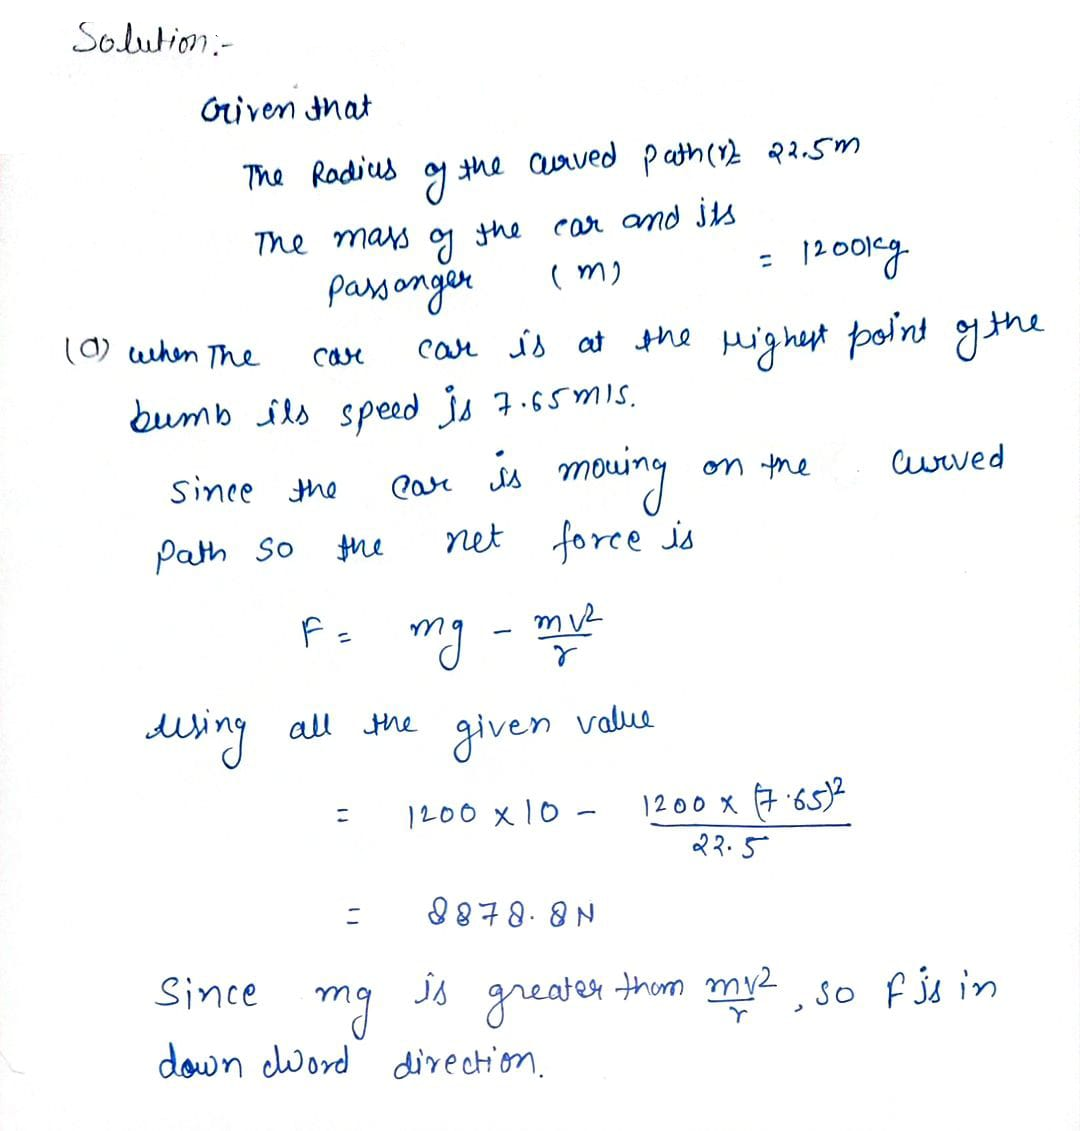 Solution:-
Given that
The Radius of the curved path(r)= 22.5m
The mass of the car and its
passanger (m) = 1200kg
(a) when The car car is at the Highest point of the
bumb its speed is 7.65m/s.
Since the car is moving on the curved
path so the net force is
F = mg - mv²/r
using all the given value
= 1200 x 10 - 1200 x (7.65)²/22.5
= 8878.8N
Since mg is greater than mv²/r, so F is in
down dword direction.